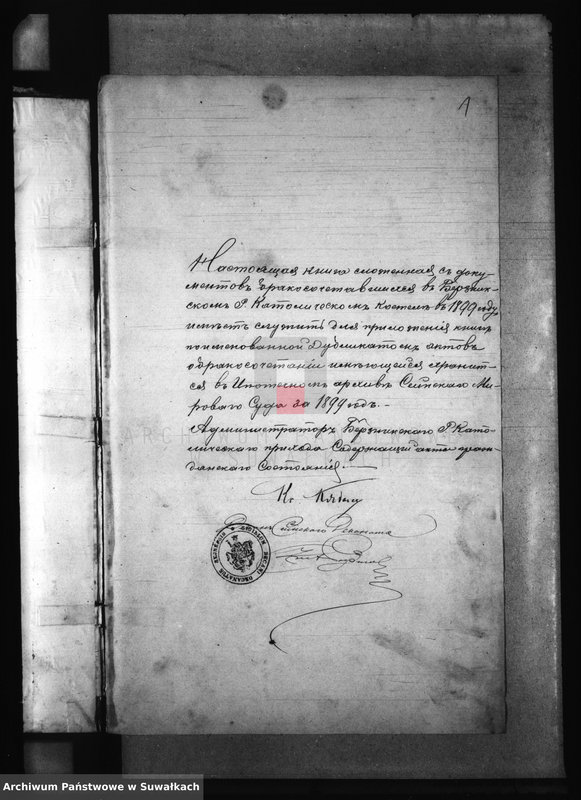 А
Настоящая книга сложенная съ доку-
ментовъ бракосочетавшихся въ Бержник-
скомъ Р. Католическомъ костелѣ въ 1899 году,
имѣетъ служить для приложенія книги
поименованной Дубликатомъ актовъ
о бракосочетаніи имѣющейся хранит-
ся въ Ипотечномъ архивѣ Сейнскаго Ми-
роваго Суда за 1899 годъ.
Администраторъ Бержникскаго Р. Като-
лическаго прихода Содержащій акты граж-
данскаго Состоянія.
Кс.
Сейнскаго Деканата
Archiwum Państwowe w Suwałkach